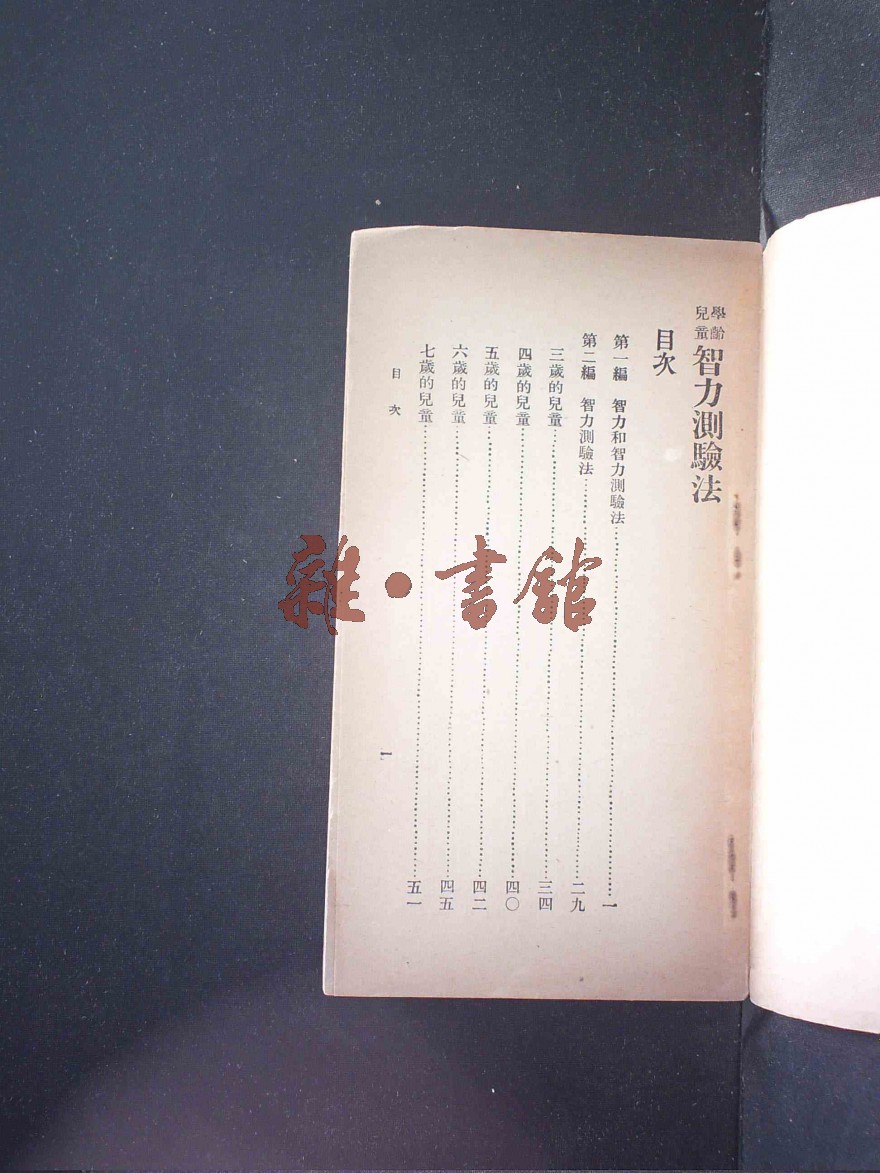 學齡兒童智力測驗法
目次
第一編　智力和智力測驗法……一
第二編　智力測驗法……二九
三歲的兒童……三四
四歲的兒童……四〇
五歲的兒童……四二
六歲的兒童……四五
七歲的兒童……五一
目次
一
雜·書館